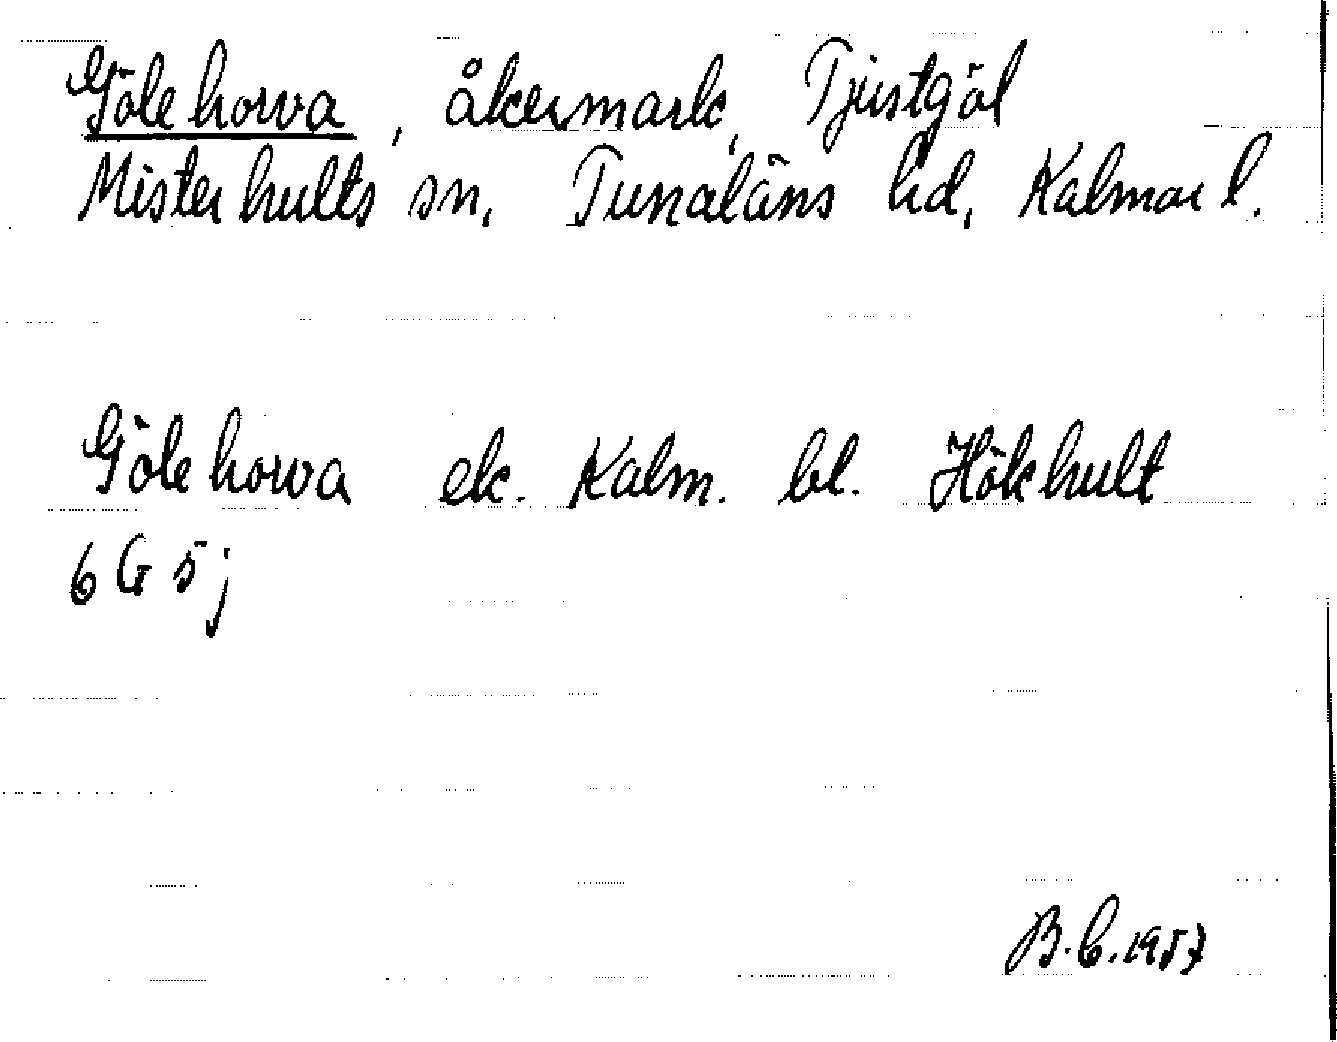 Gölehorva, åkermark, Tjustgöl
Misterhults sn, Tunaläns hd, Kalmar l.
Gölehorva ek. Kalm. bl. Hökhult
6 G 5 j
B.C. 1957